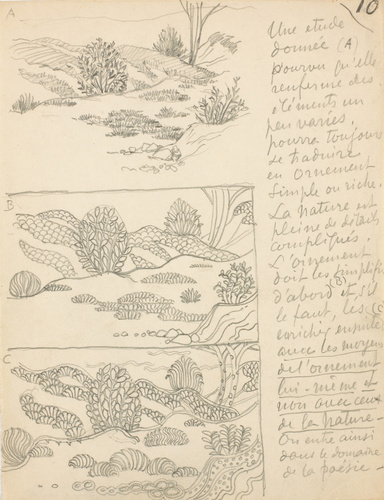 10
A
Une etude
donnée (A)
pourvu qu'elle
renferme des
éléments un
peu variés,
pourra toujours
se traduire
en ornement
simple ou riche.
La nature est
pleine de détails
compliqués.
L'ornement
doit les simplifier
d'abord (B) et s'il
le faut, les (C)
enrichir ensuite
avec les moyens
de l'ornement
lui-même et
non avec ceux
de la nature -
On entre ainsi
dans le domaine
de la poésie -
B
C